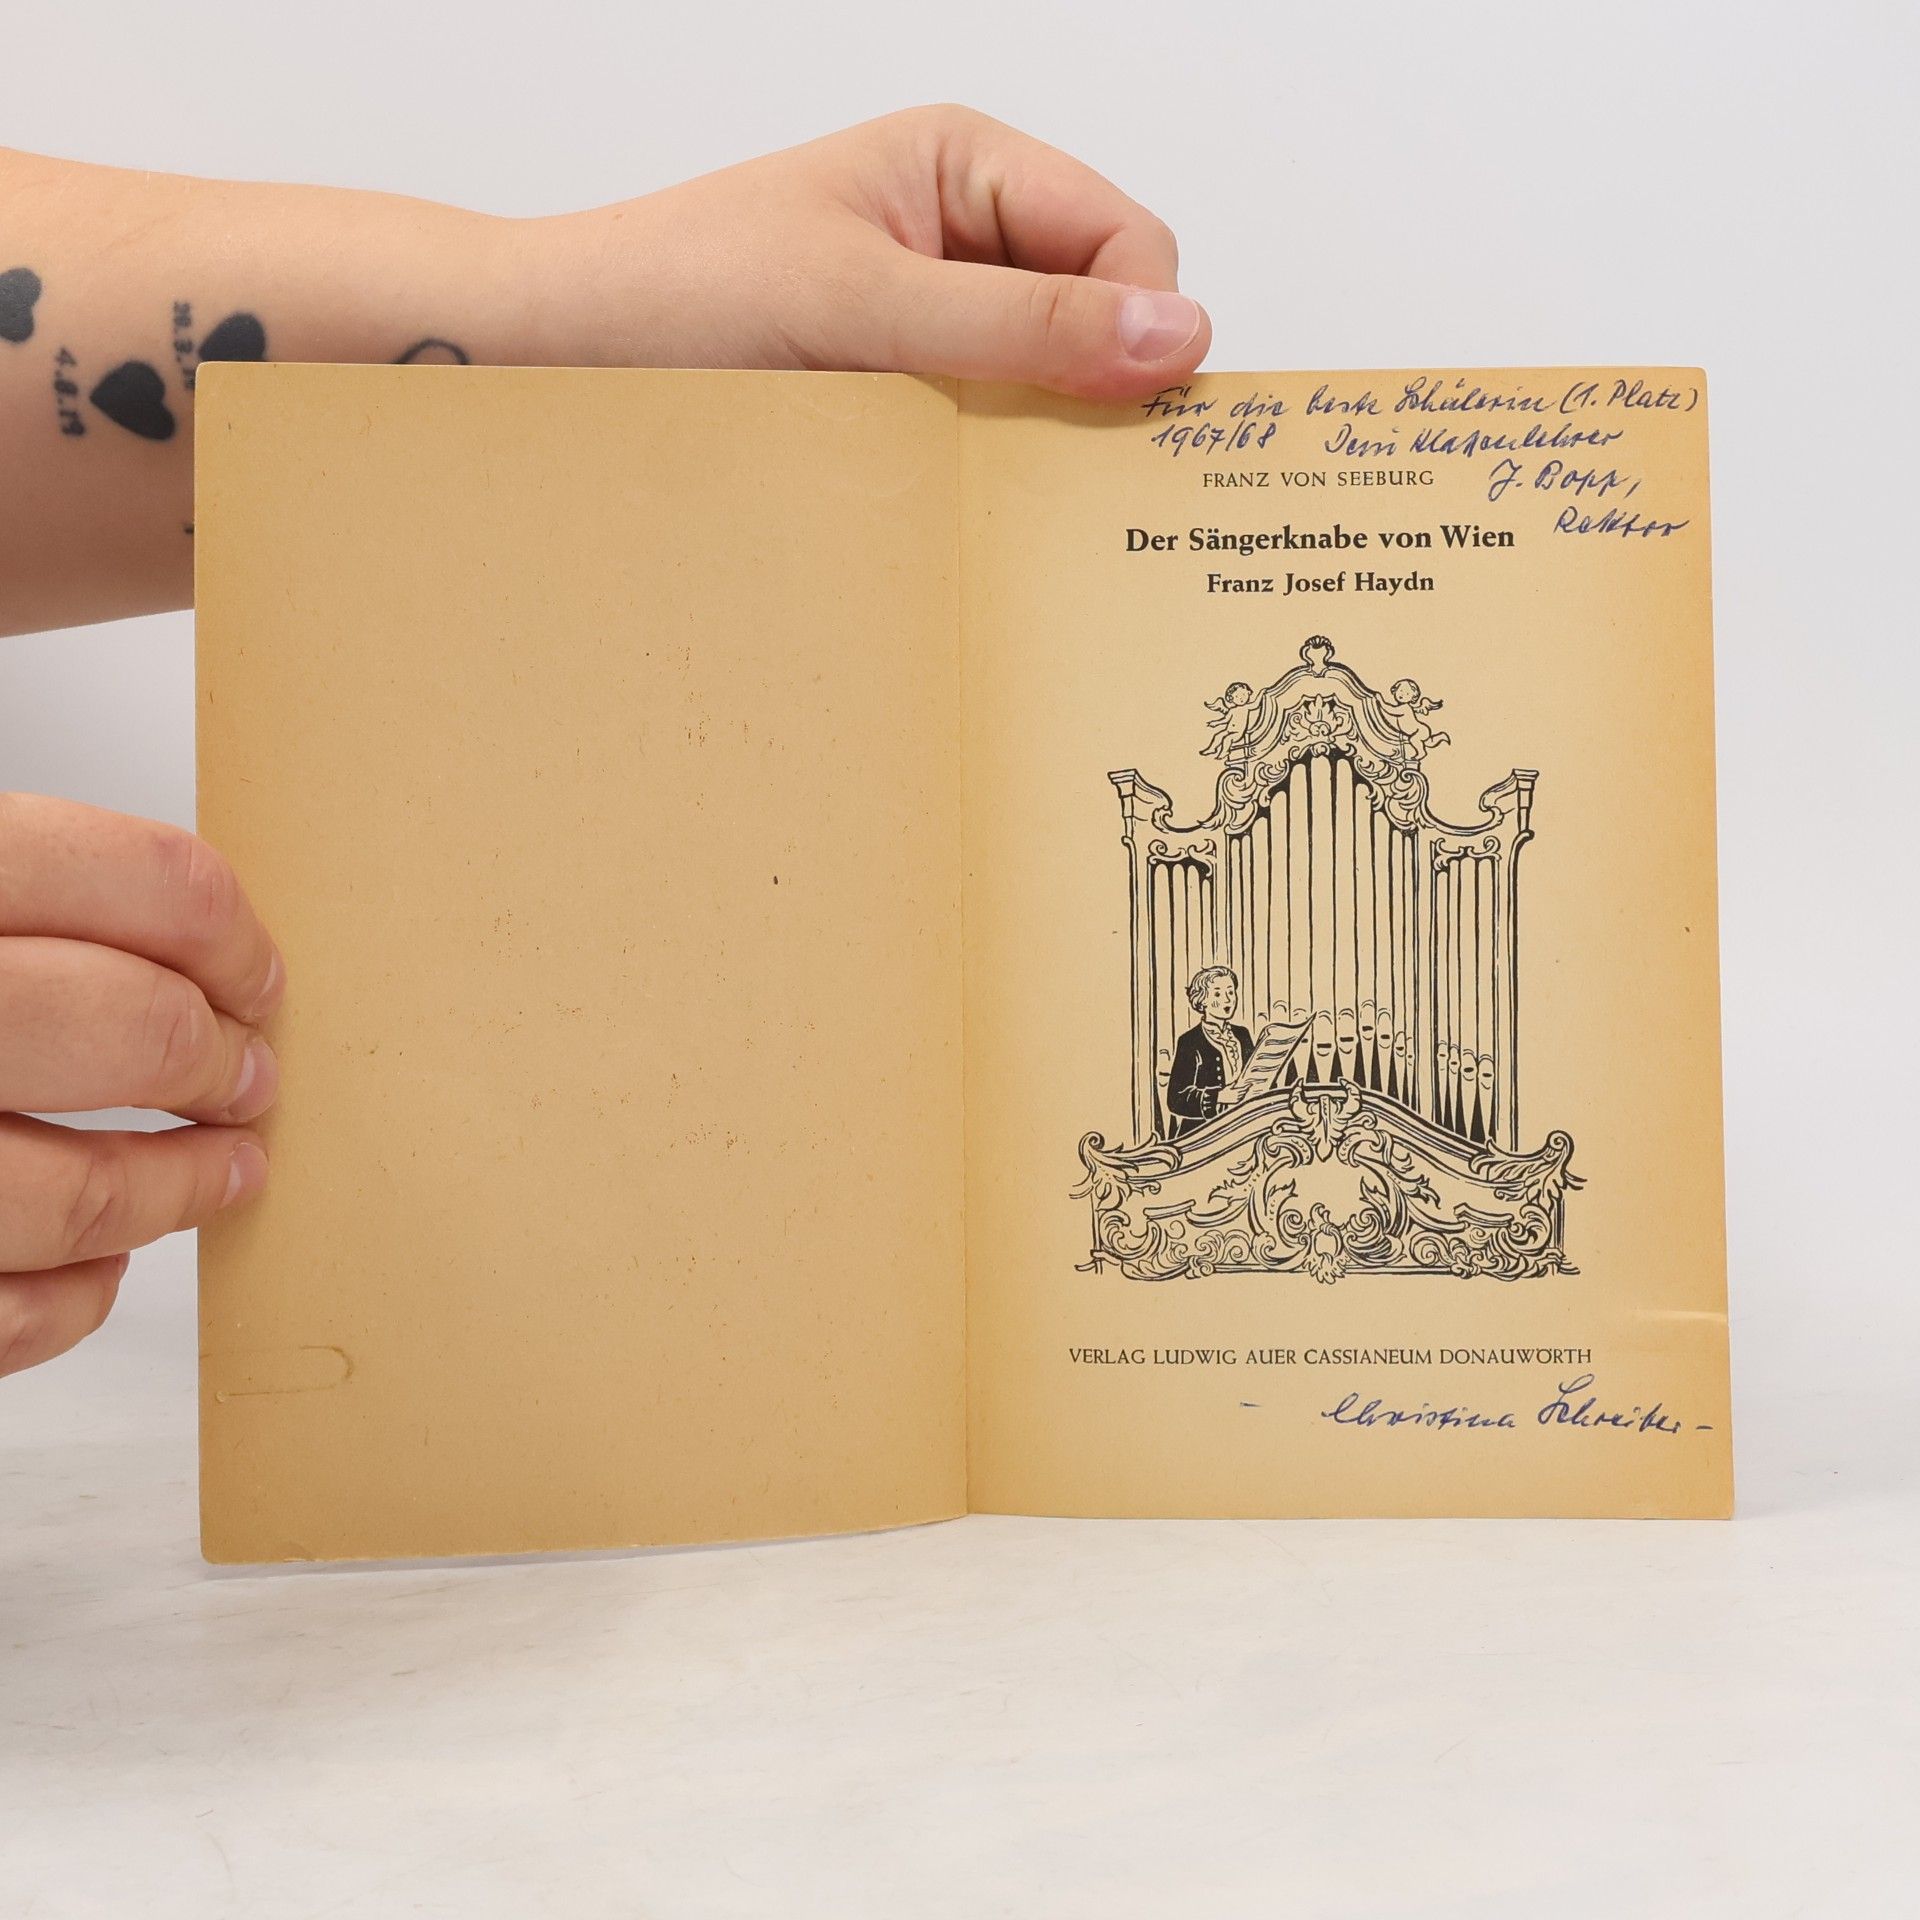 4.8.19
Für die beste Schülerin (1. Platz)
1967/68 Dein Klassenlehrer
J. Bopp,
Rektor
FRANZ VON SEEBURG
Der Sängerknabe von Wien
Franz Josef Haydn
VERLAG LUDWIG AUER CASSIANEUM DONAUWÖRTH
– Christina Schreiber –